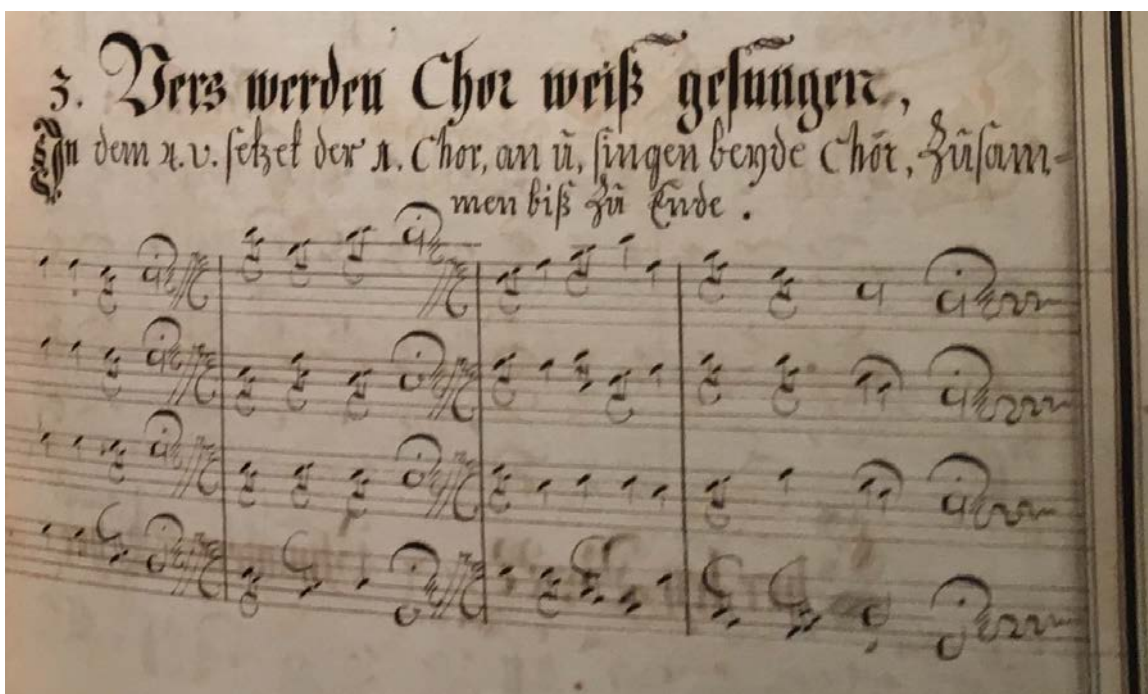 3. Vers werden Chor weiß gesungen,
In dem 4. v. setzet der 1. Chor, an ũ, singen beyde Chör, Zũsam-
men biß Zũ Ende.